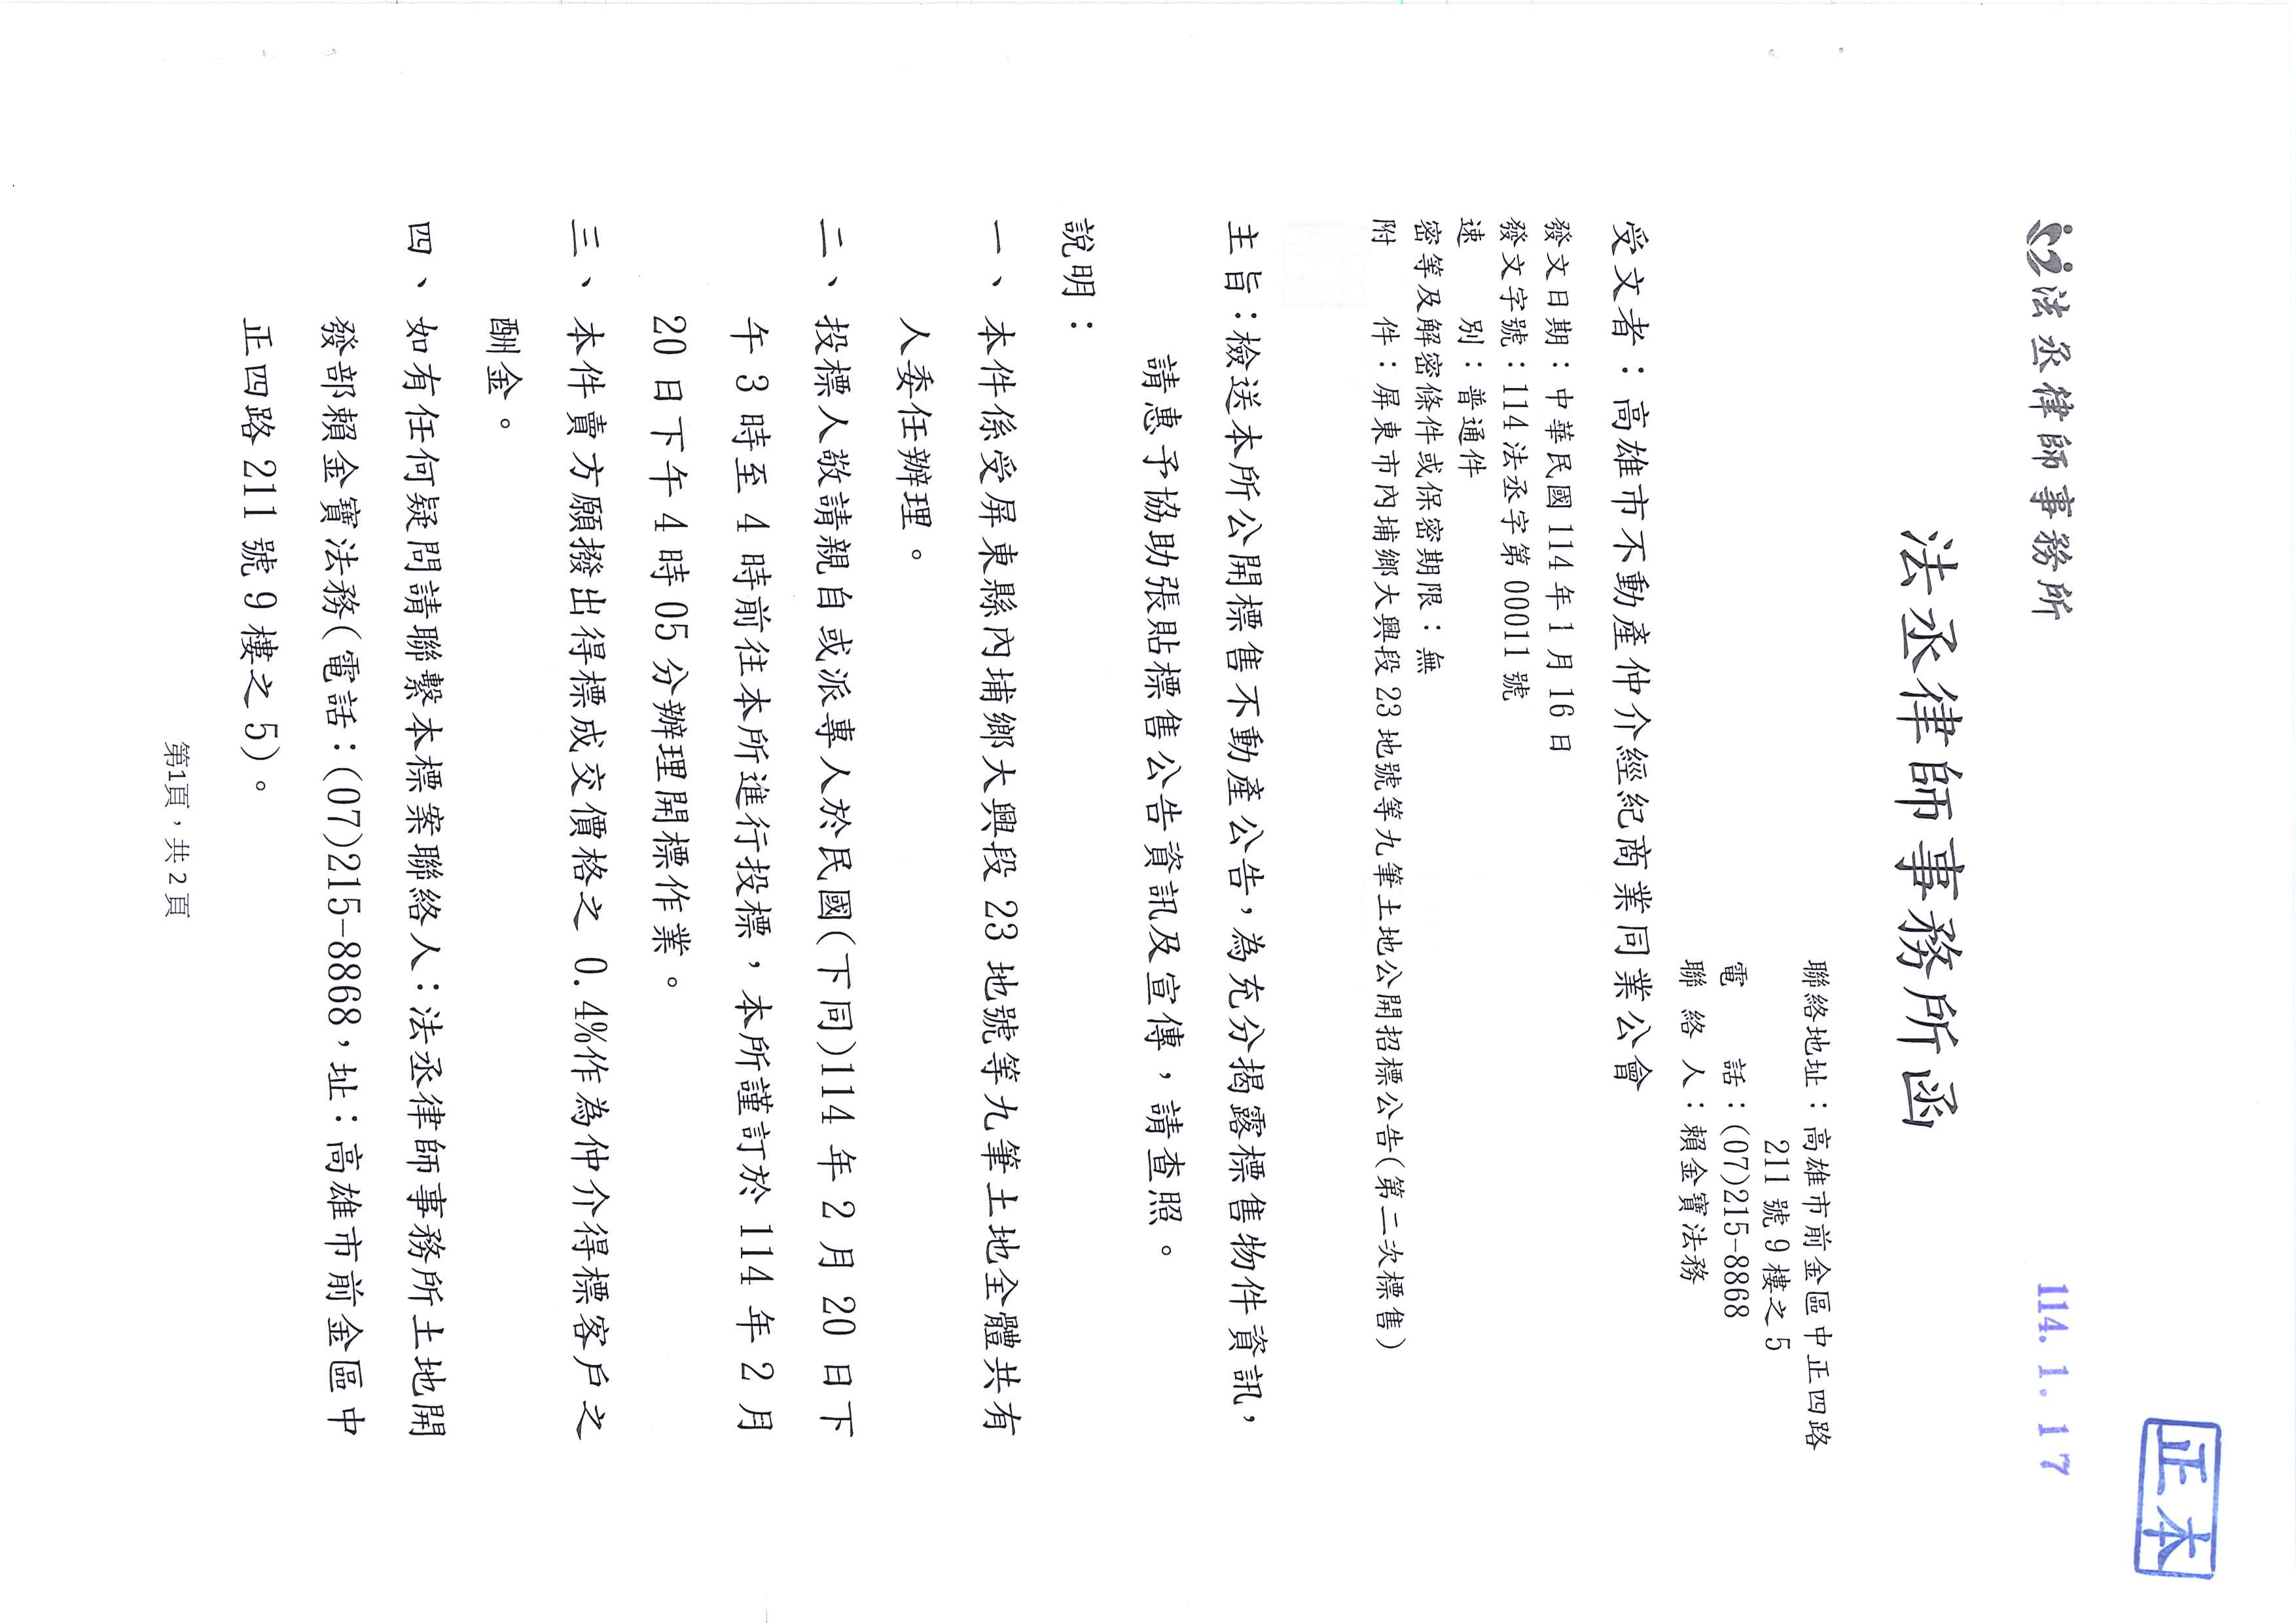 法丞律師事務所
114. 1. 17
正本
法丞律師事務所函
聯絡地址：高雄市前金區中正四路
211號9樓之5
電　　話：(07)215-8868
聯 絡 人：賴金寶法務
受文者：高雄市不動產仲介經紀商業同業公會
發文日期：中華民國114年1月16日
發文字號：114法丞字第00011號
速　　別：普通件
密等及解密條件或保密期限：無
附　　件：屏東市內埔鄉大興段23地號等九筆土地公開招標公告(第二次標售)
主旨：檢送本所公開標售不動產公告，為充分揭露標售物件資訊，
請惠予協助張貼標售公告資訊及宣傳，請查照。
說明：
一、本件係受屏東縣內埔鄉大興段23地號等九筆土地全體共有
人委任辦理。
二、投標人敬請親自或派專人於民國(下同)114年2月20日下
午3時至4時前往本所進行投標，本所謹訂於114年2月
20日下午4時05分辦理開標作業。
三、本件賣方願撥出得標成交價格之 0.4%作為仲介得標客戶之
酬金。
四、如有任何疑問請聯繫本標案聯絡人：法丞律師事務所土地開
發部賴金寶法務(電話：(07)215-8868，址：高雄市前金區中
正四路211號9樓之5)。
第1頁，共2頁